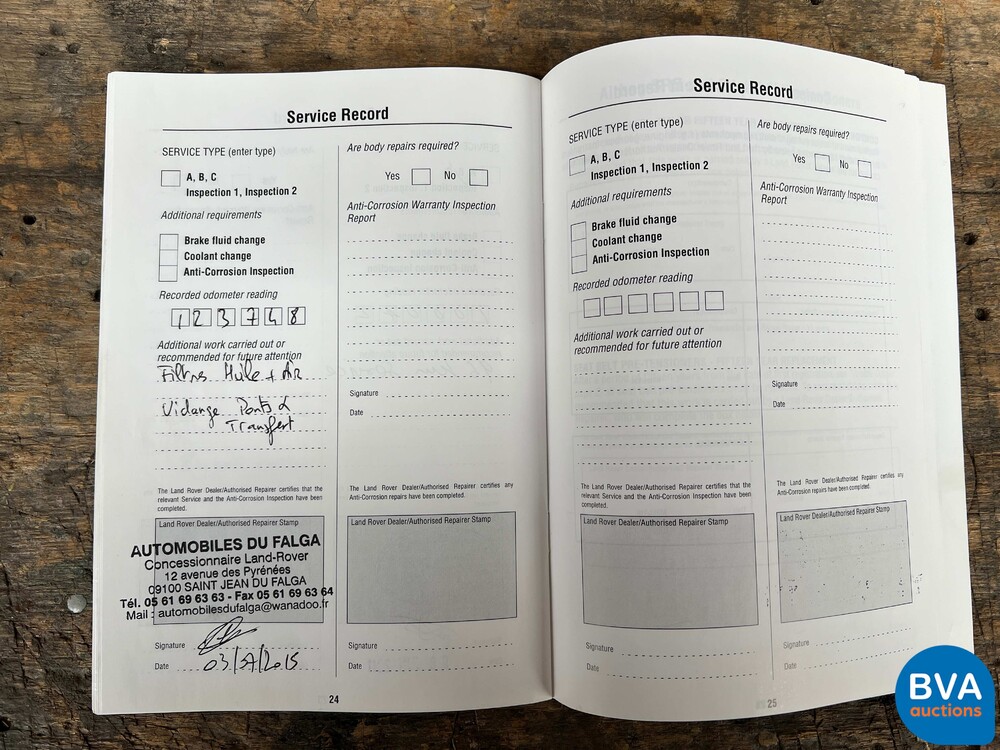 Service Record
SERVICE TYPE (enter type)
A, B, C
Inspection 1, Inspection 2
Additional requirements
Brake fluid change
Coolant change
Anti-Corrosion Inspection
Recorded odometer reading
1 2 3 7 4 8
Additional work carried out or
recommended for future attention
Filtres Huile + Air
Vidange Ponts &
Transfert
The Land Rover Dealer/Authorised Repairer certifies that the
relevant Service and the Anti-Corrosion Inspection have been
completed.
Land Rover Dealer/Authorised Repairer Stamp
AUTOMOBILES DU FALGA
Concessionnaire Land-Rover
12 avenue des Pyrénées
09100 SAINT JEAN DU FALGA
Tél. 05 61 69 63 63 - Fax 05 61 69 63 64
Mail : automobilesdufalga@wanadoo.fr
Signature
Date 03/07/2015
Are body repairs required?
Yes No
Anti-Corrosion Warranty Inspection
Report
Signature
Date
The Land Rover Dealer/Authorised Repairer certifies any
Anti-Corrosion repairs have been completed.
Land Rover Dealer/Authorised Repairer Stamp
Signature
Date
24
Service Record
SERVICE TYPE (enter type)
A, B, C
Inspection 1, Inspection 2
Additional requirements
Brake fluid change
Coolant change
Anti-Corrosion Inspection
Recorded odometer reading
Additional work carried out or
recommended for future attention
The Land Rover Dealer/Authorised Repairer certifies that the
relevant Service and the Anti-Corrosion Inspection have been
completed.
Land Rover Dealer/Authorised Repairer Stamp
Signature
Date
Are body repairs required?
Yes No
Anti-Corrosion Warranty Inspection
Report
Signature
Date
The Land Rover Dealer/Authorised Repairer certifies any
Anti-Corrosion repairs have been completed.
Land Rover Dealer/Authorised Repairer Stamp
Signature
Date
25
BVA
auctions